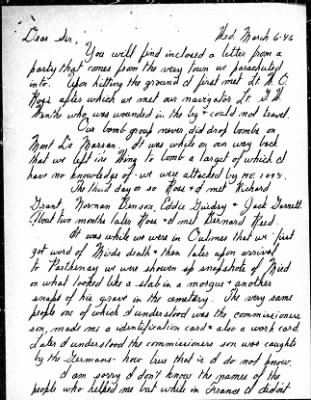 Wed. March 6-46
Dear Sir,
You will find inclosed a letter from a
party that comes from the very town we parachuted
into. Upon hitting the ground I first met Lt. W. O.
Ross after which we met our navigator Lt. G. W.
who was wounded in the leg & could not travel.
Our bomb group never did drop bombs on
Mont De Marsan. It was while on our way back
that we left its Wing to bomb a target of which I
have no knowledge of - we were attacked by
The third day or so Ross & I met Richard
Grant, Norman Benson, Eddie Guidry & Jack Garrett.
About two months later Ross & I met Bernard Reed.
It was while we were in Oulmes that we first
got word of death & then later upon arrival
to Parthenay we were shown up snapshots of
on what looked like a slab in a morgue & another
snaps of his grave in the cemetary. The very same
people one of which I understood was the commissioners
son, made me a identification card & also a work card.
Later I understood the commissioners son was caught
by the Germans - how true that is I do not know.
I am sorry I don't know the names of the
people who helped me but while in France I didn't